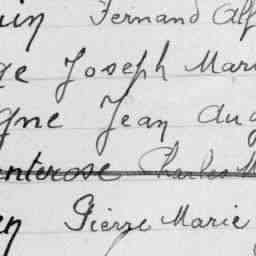 uin Fernand Alf
ge Joseph Mari
gne Jean Aug
nterose Charles M
en Pierre Marie